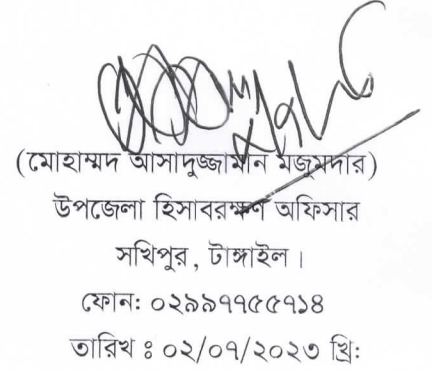 (মোহাম্মদ আসাদুজ্জামান মজুমদার)
উপজেলা হিসাবরক্ষণ অফিসার
সখিপুর, টাঙ্গাইল।
ফোন: ০২৯৯৭৭৫৫৭১৪
তারিখ ঃ ০২/০৭/২০২৩ খ্রি: